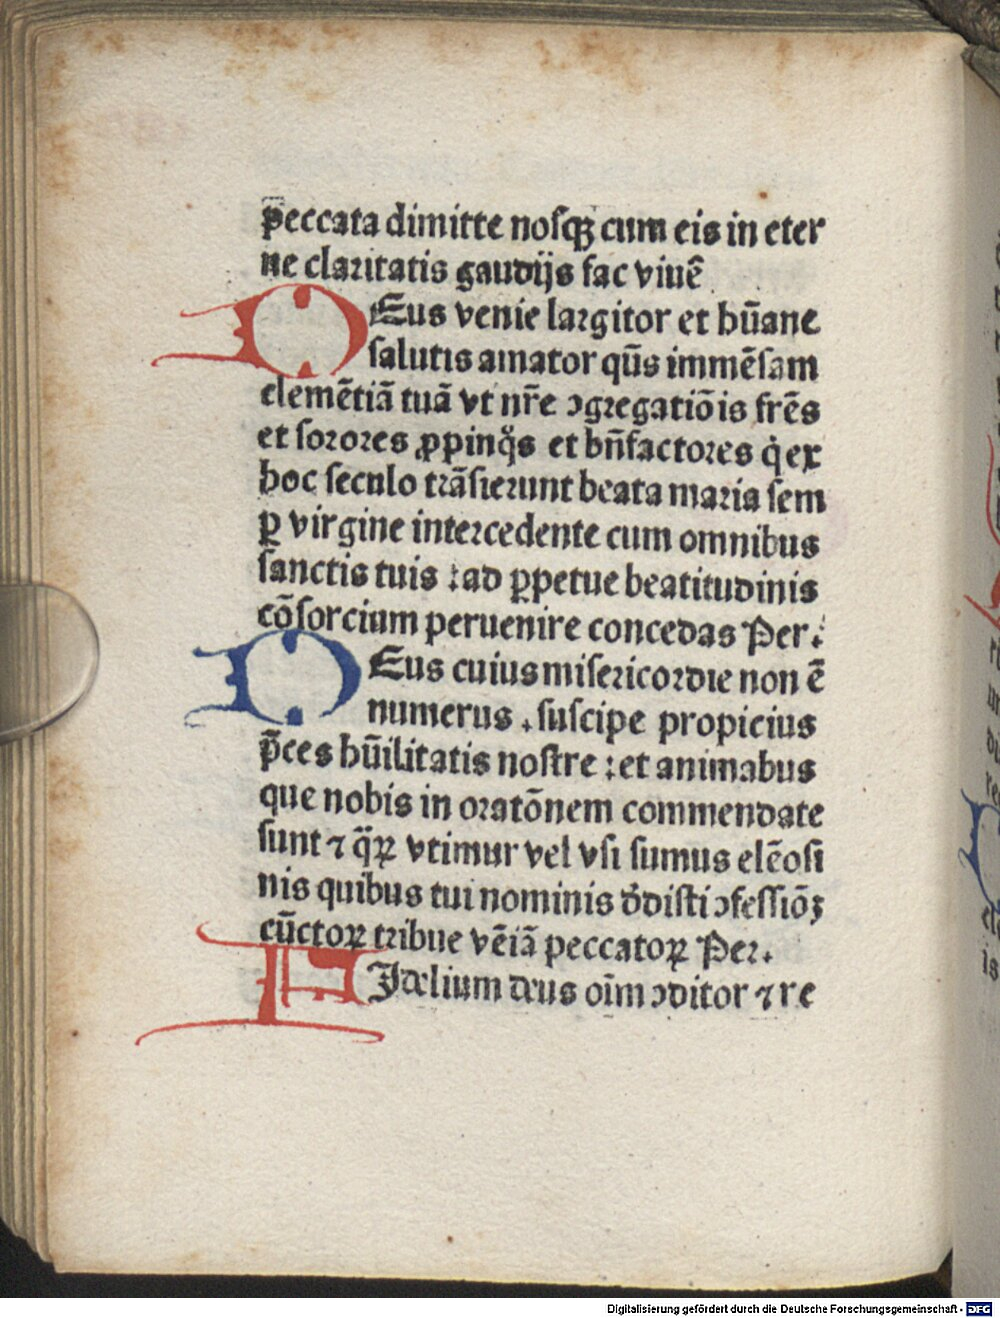 peccata dimitte nosqꝫ cum eis in eter
ne claritatis gaudijs fac viuē
DEus venie largitor et hūane
salutis amator qūs immēsam
clemētiā tuā vt nr̄e ꝯgregatiōis frēs
et sorores ꝓpinq̄s et bn̄factores q̇ ex
hoc seculo trāsierunt beata maria sem
ꝑ virgine intercedente cum omnibus
sanctis tuis : ad ꝑpetue beatitudinis
cōsorcium peruenire concedas Per.
DEus cuius misericordie non ē
numerus . suscipe propicius
p̄ces hūilitatis nostre : et animabus
que nobis in oratōnem commendate
sunt ⁊ q̄ꝝ vtimur vel vsi sumus elēosi
nis quibus tui nominis d̄disti ꝯfessiōꝫ
cūctoꝝ tribue vēiā peccatoꝝ Per.
FIdelium deus oīm ꝯditor ⁊ re
Digitalisierung gefördert durch die Deutsche Forschungsgemeinschaft - DFG